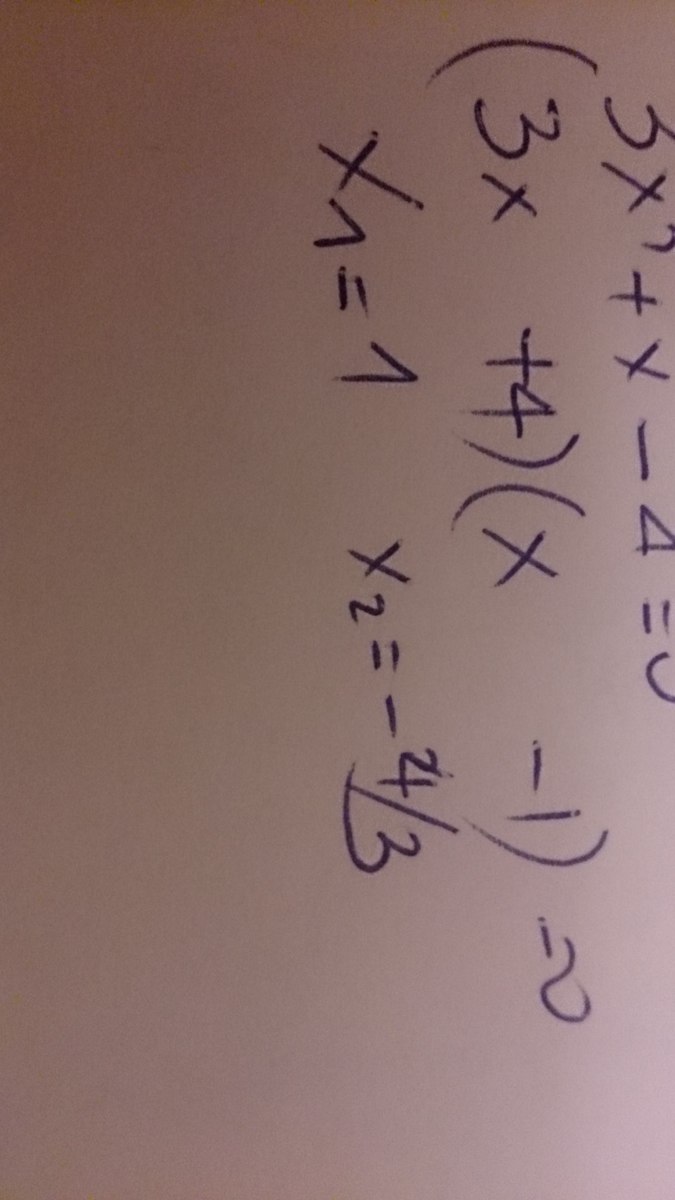 3x² + x - 4 = 0
(3x +4)(x -1) = 0
x₁ = 1 x₂ = -4/3